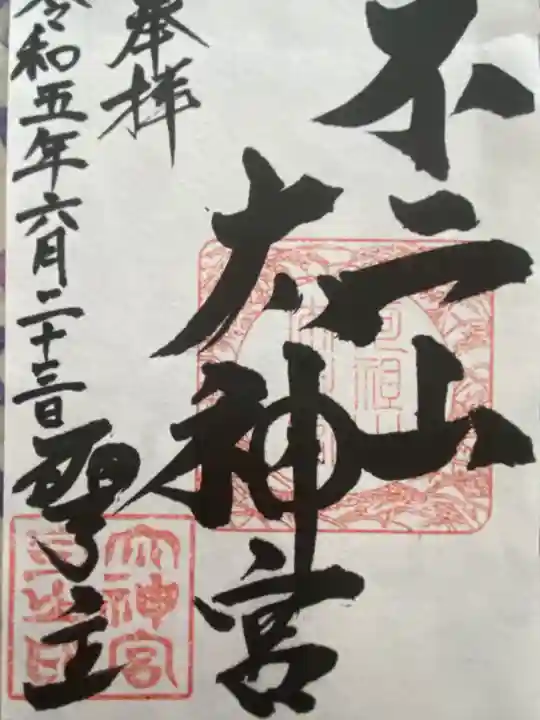 不二山
大神宮
奉拝
令和五年六月二十三日
聖主
大神宮